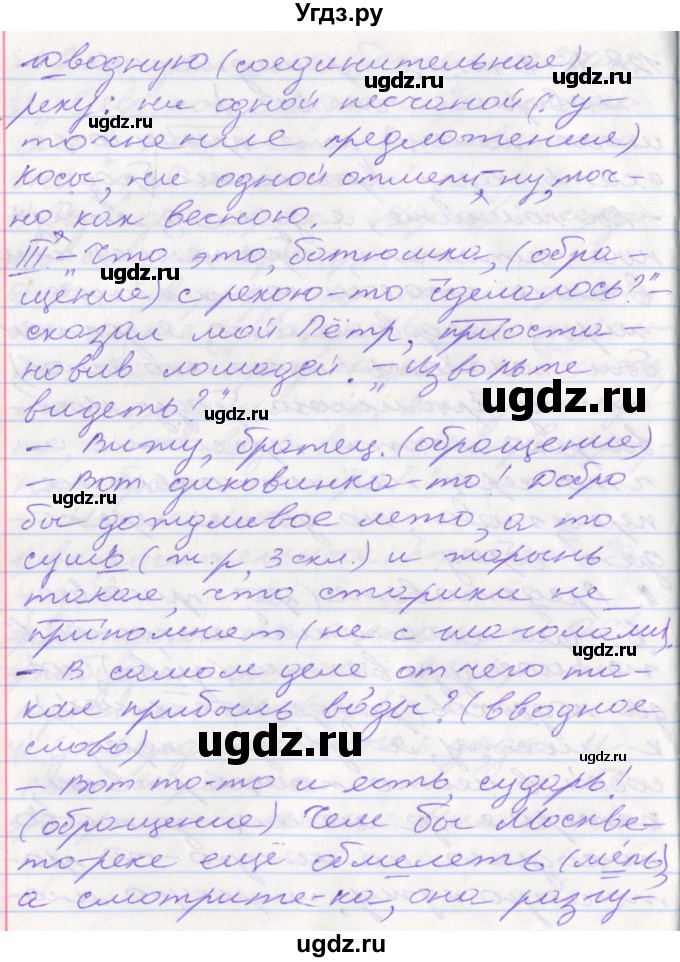 Угдз.ру
ugdz.ru
ugdz.ru
ловодную (соединительная)
реку: ни одной песчаной (: у-
ugdz.ru
точнение предложения)
ugdz.ru
косы, ни одной отмели – ну, точ-
но как весною.
III. – Что это, батюшка, (обра-
ugdz.ru
щение) с рекою-то сделалось?" –
сказал мой Пётр, приоста-
новив лошадей. – "Извольте
ugdz.ru
видеть?"
ugdz.ru
– Вижу, братец. (обращение)
– Вот диковинка-то! Добро
ugdz.ru
бы дождливое лето, а то
сушь (ж.р, 3 скл.) и жарынь
такая, что старики не
припомнят (не с глаголами).
ugdz.ru
– В самом деле отчего та-
кая прибыль воды? (вводное
слово)
ugdz.ru
ugdz.ru
– Вот то-то и есть, сударь!
(обращение) Чем бы Москве-
то-реке ещё обмелеть (мель),
ugdz.ru
а смотрите-ка, она разгу-
ugdz.ru